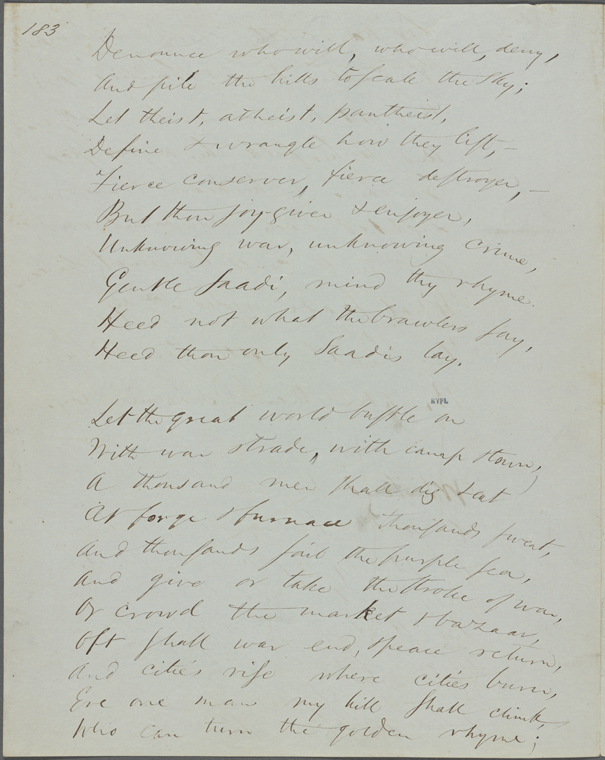 183
Denounce who will, who will, deny,
And pile the hills to scale the sky;
Let theist, atheist, pantheist,
Define & wrangle how they list,—
Fierce conserver, fierce destroyer,—
But thou joy-giver & enjoyer,
Unknowing war, unknowing crime,
Gentle Saadi, mind thy rhyme.
Heed not what the brawlers say,
Heed thou only Saadi's lay.
NYPL
Let the great world bustle on
With war & trade, with camp & town,
A thousand men shall dig & eat
At forge & furnace thousands sweat,
And thousands sail the purple sea,
And give or take the stroke of war,
Or crowd the market & bazaar,
Oft shall war end, & peace return,
And cities rise where cities burn,
Ere one man my hill shall climb,
Who can turn the golden rhyme;